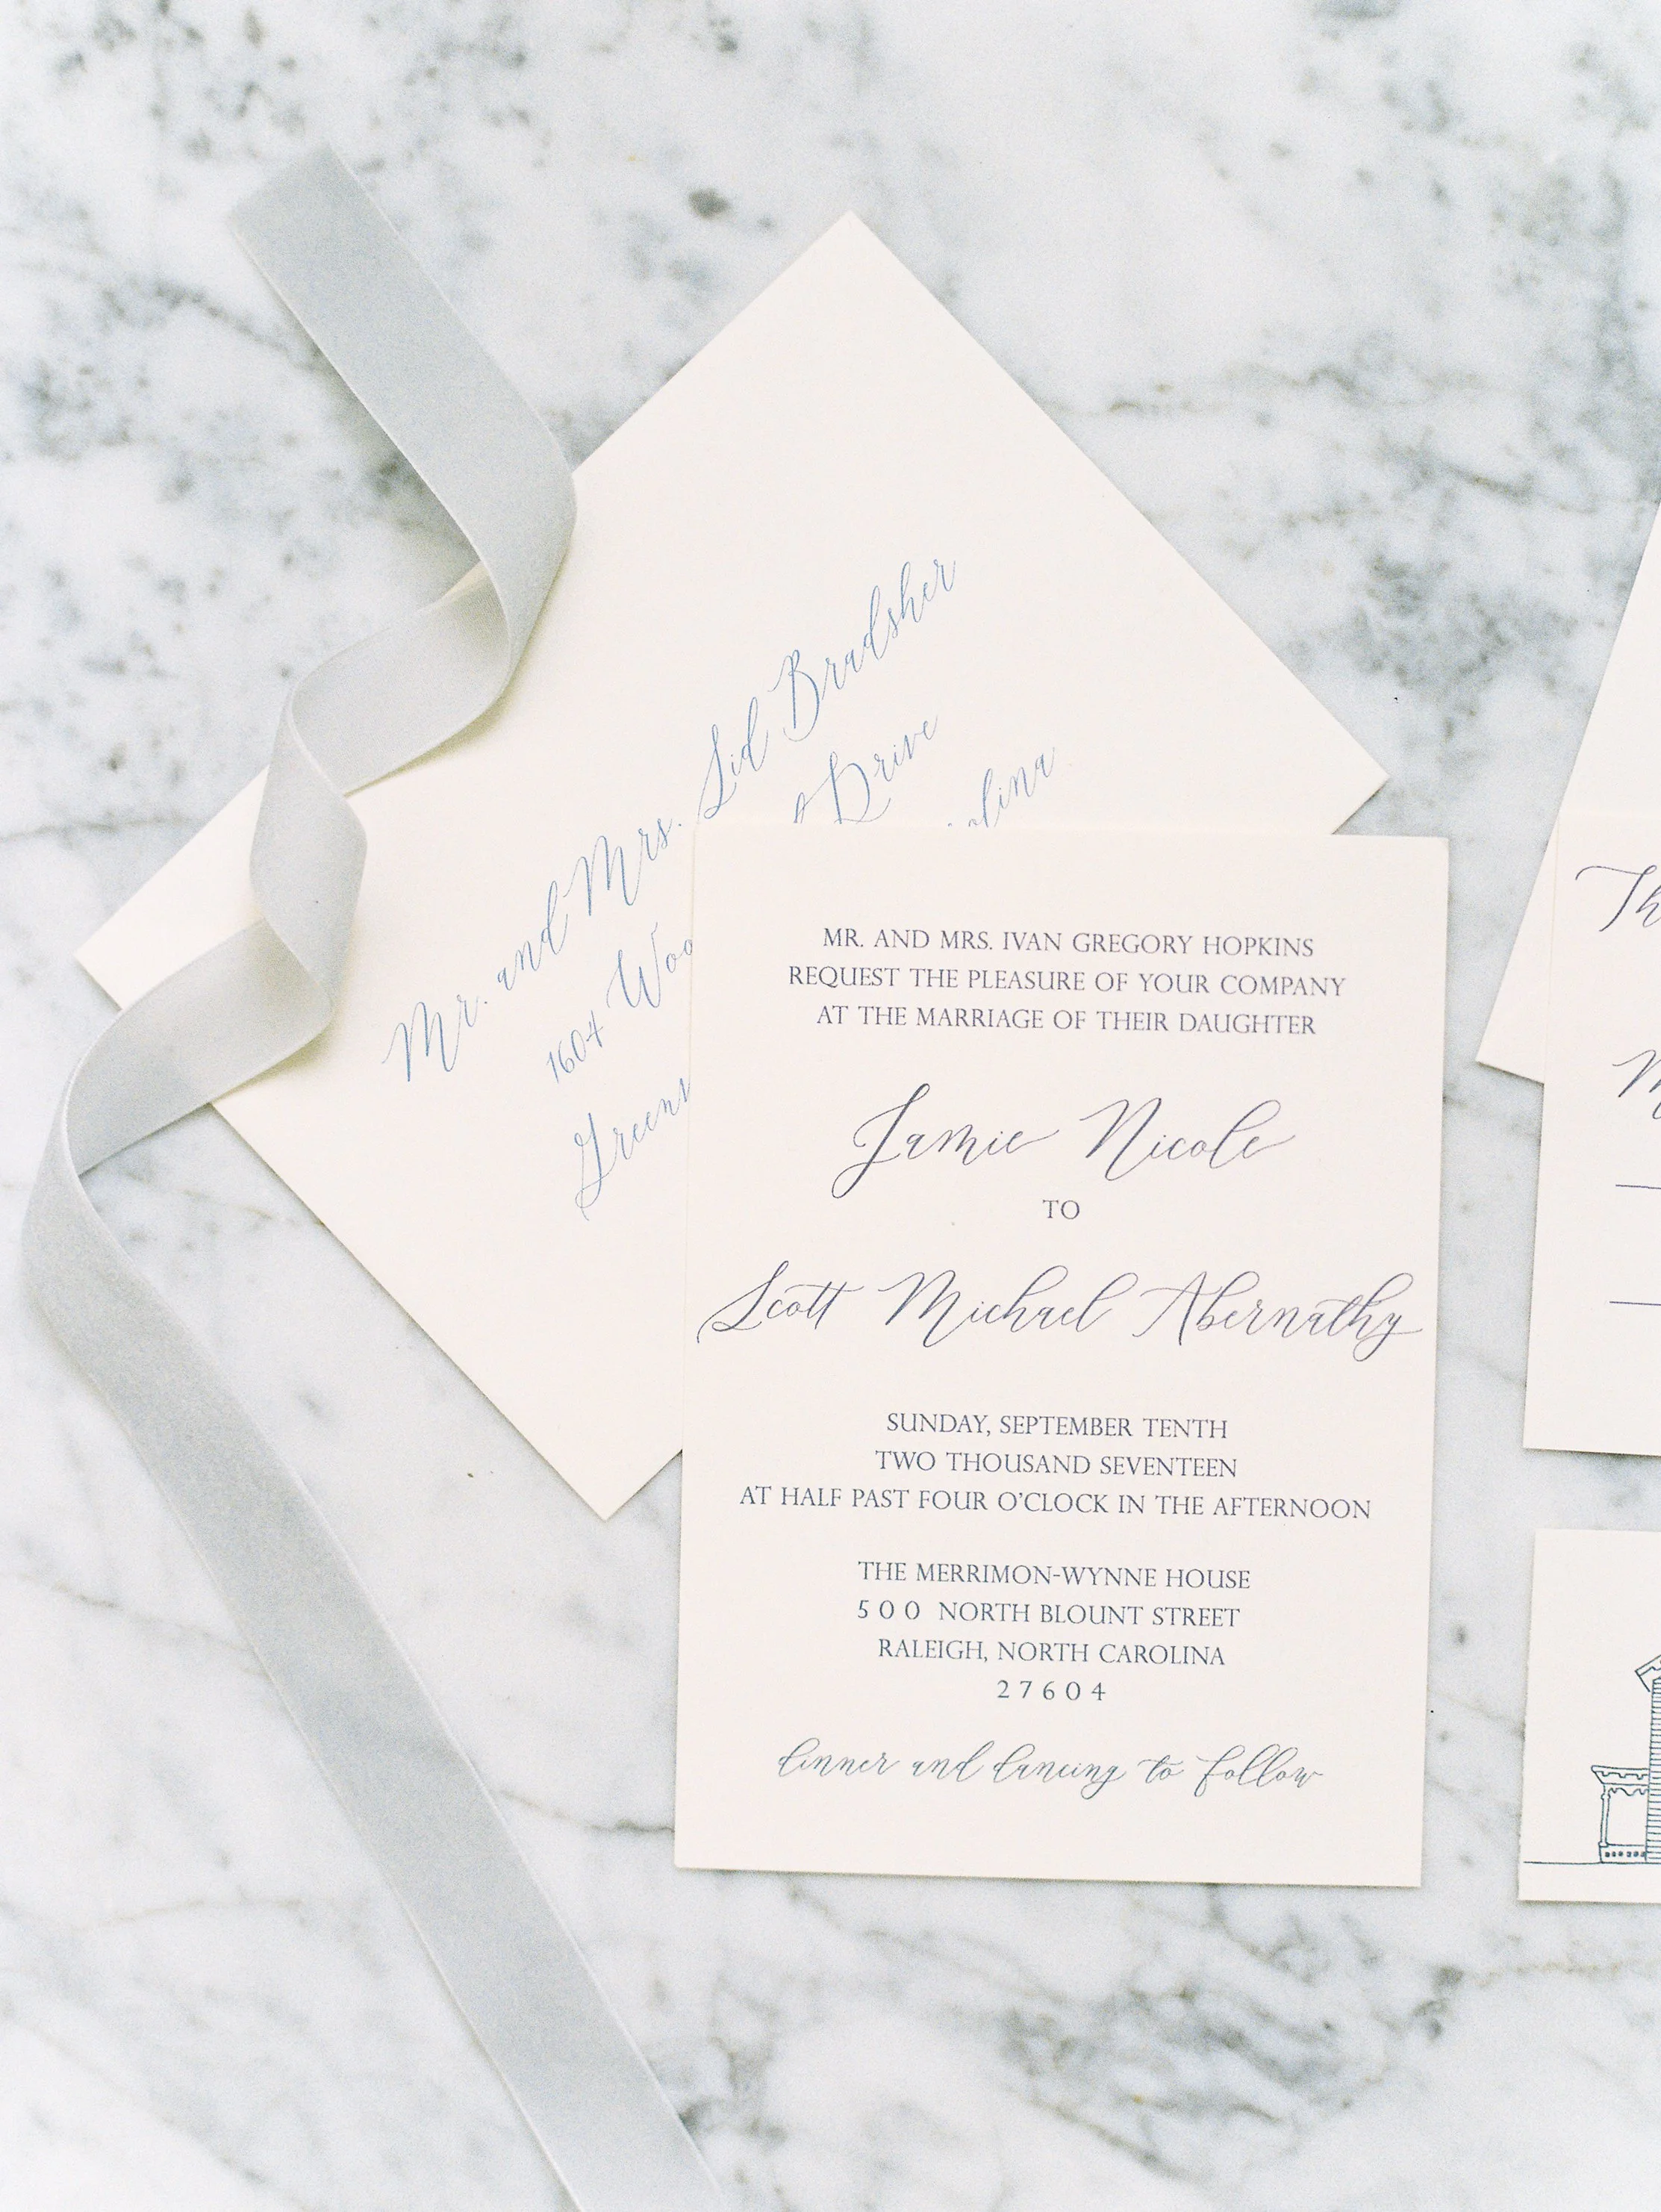 Mr. and Mrs. Sid Bradsher
1604 Drive
MR. AND MRS. IVAN GREGORY HOPKINS
REQUEST THE PLEASURE OF YOUR COMPANY
AT THE MARRIAGE OF THEIR DAUGHTER
Jamie Nicole
TO
Scott Michael Abernathy
SUNDAY, SEPTEMBER TENTH
TWO THOUSAND SEVENTEEN
AT HALF PAST FOUR O'CLOCK IN THE AFTERNOON
THE MERRIMON-WYNNE HOUSE
500 NORTH BLOUNT STREET
RALEIGH, NORTH CAROLINA
27604
dinner and dancing to follow